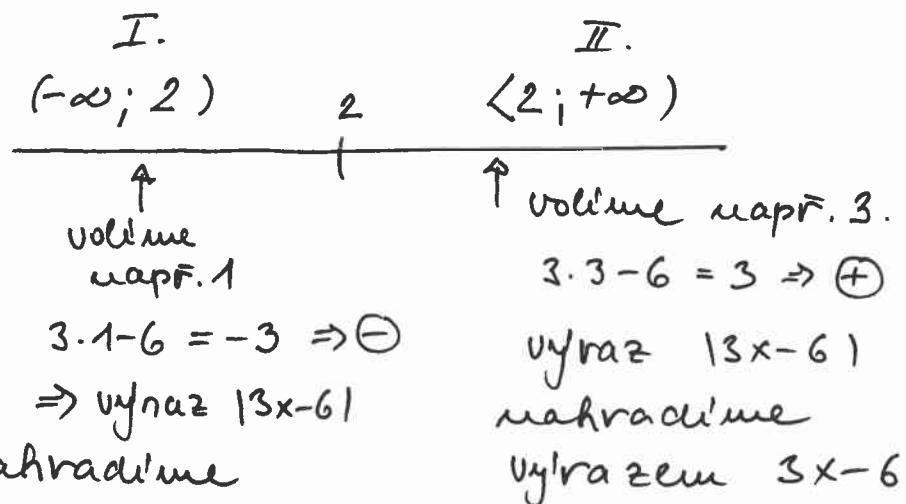 I.
(-∞; 2)
2
II.
<2; +∞)
volíme
např. 1
3·1-6 = -3 ⇒ ⊖
⇒ výraz |3x-6|
ahradíme
volíme např. 3.
3·3-6 = 3 ⇒ ⊕
výraz |3x-6|
nahradíme
výrazem 3x-6